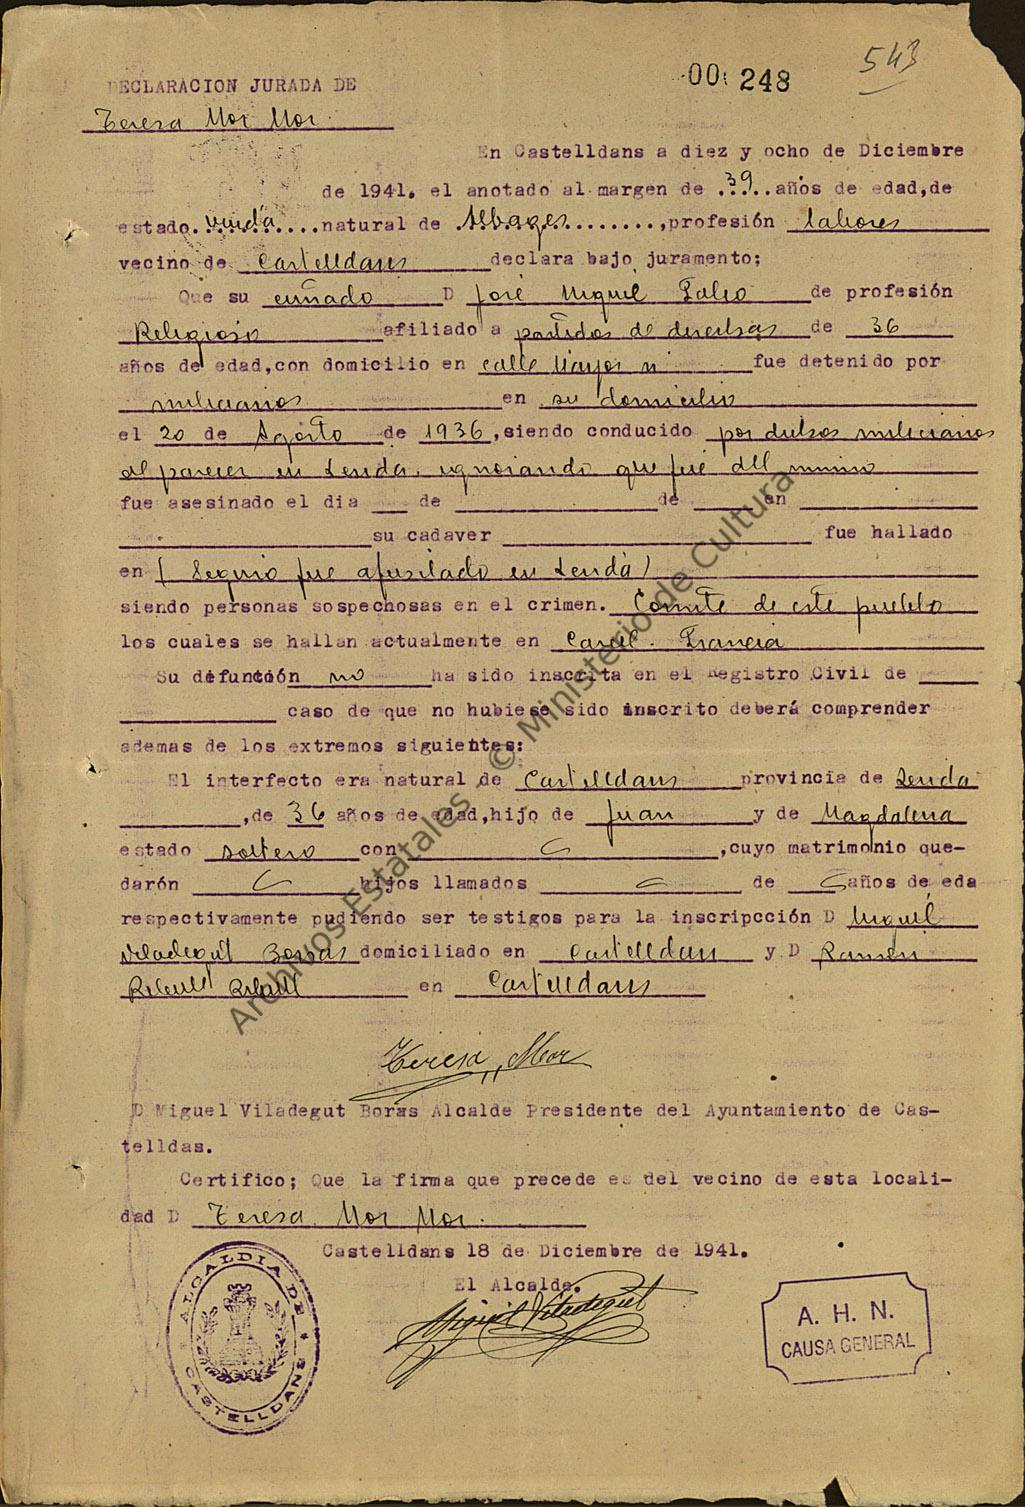 543
00: 248
DECLARACION JURADA DE
Teresa Mor Mor.
En Castelldans a diez y ocho de Diciembre
de 1941. el anotado al margen de .39.. años de edad,de
estado.viuda....natural de .Albages........,profesión labores
vecino de Castelldans declara bajo juramento;
Que su cuñado D José Miquel de profesión
Religioso afiliado a partidos de derechas de 36
años de edad,con domicilio en calle Mayor n fue detenido por
milicianos en su domicilio
el 20 de Agosto de 1936,siendo conducido por dichos milicianos
al parecer en Lerida, ignorando que fué del mismo
fue asesinado el dia de de en
su cadaver fue hallado
en ( Seguro fue afusilado en Lerida)
siendo personas sospechosas en el crimen. Comite de este pueblo
los cuales se hallan actualmente en Carcel. Francia
Su difunción no ha sido inscrita en el Registro Civil de
caso de que no hubiese sido inscrito deberá comprender
ademas de los extremos siguientes:
El interfecto era natural de Castelldans provincia de Lerida
,de 36 años de edad,hijo de Juan y de Magdalena
estado soltero con ,cuyo matrimonio que-
darón hijos llamados de años de eda
respectivamente pudiendo ser testigos para la inscripcción D Miquel
Viladegut Borras domiciliado en Castelldans y D Ramón
en Castelldans
Teresa Mor
D Miguel Viladegut Boras Alcalde Presidente del Ayuntamiento de Cas-
telldas.
Certifico; Que la firma que precede es del vecino de esta locali-
dad D Teresa Mor Mor.
Castelldans 18 de Diciembre de 1941.
El Alcalde.
Miguel Viladegut
ALCALDIA DE
CASTELLDANS
A. H. N.
CAUSA GENERAL
Archivos Estatales. © Ministerio de Cultura